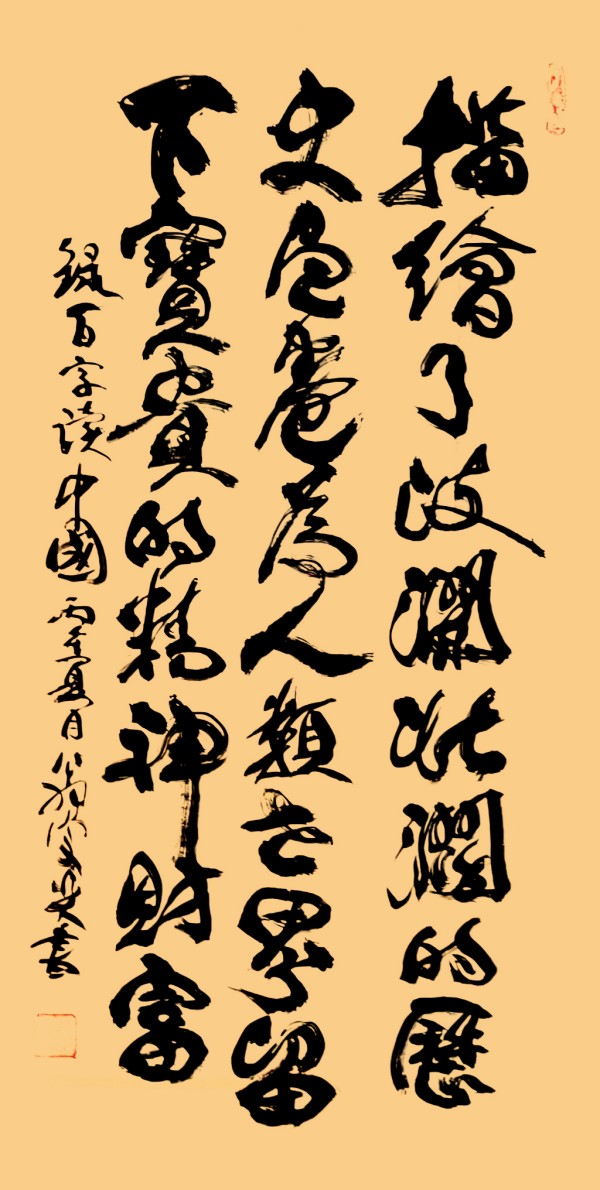 描繪了波瀾壯濶的歷
史畫卷為人類世界留
下寶貴的精神財富
錄百字讀中國 丙申夏月翁 書